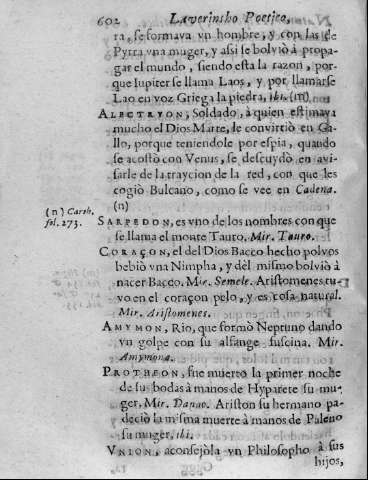 602 Laverintho Poetico,
ra, se formava vn hombre, y con las de
Pyrra vna muger, y assi se bolviò à propa-
gar el mundo, siendo esta la razon, por-
que Iupiter se llama Laos, y por llamarse
Lao en voz Griega la piedra, ibi. (m)
ALECTRYON, Soldado, à quien estimava
mucho el Dios Marte, le convirtiò en Ga-
llo, porque teniendole por espia, quando
se acostò con Venus, se descuydò en avi-
sarle de la traycion de la red, con que les
cogiò Bulcano, como se vee en Cadena.
(n)
(n) Carth.
fol. 273.
SARPEDON, es vno de los nombres con que
se llama el monte Tauro. Mir. Tauro.
CORAÇON, el del Dios Bacco hecho polvos
bebiò vna Nimpha, y dèl mismo bolviò à
nacer Bacco. Mir. Semele. Aristomenes tu-
vo en el coraçon pelo, y es cosa natural.
Mir. Aristomenes.
AMYMON, Rio, que formò Neptuno dando
vn golpe con su alfange fuscina. Mir.
Amymona.
PROTHEON, fue muerto la primer noche
de su bodas à manos de Hyparete su mu-
ger, Mir. Danao. Ariston su hermano pa-
deciò la misma muerte à manos de Paleno
su muger, ibi.
VNION, aconsejòla vn Philosopho à sus
hijos,